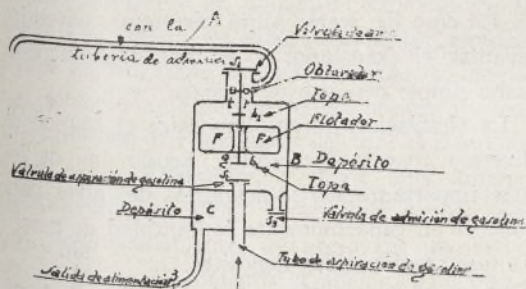 con la A
tubería de admisión
S₁ Válvula de aire
Obturador
t t
h₁ Topa
F F Flotador
B Depósito
g h₂
Válvula de aspiración de gasolina S₂
Topa
Depósito C
S₃ Válvula de admisión de gasolina
Tubo de aspiración de gasolina
Salida de alimentación